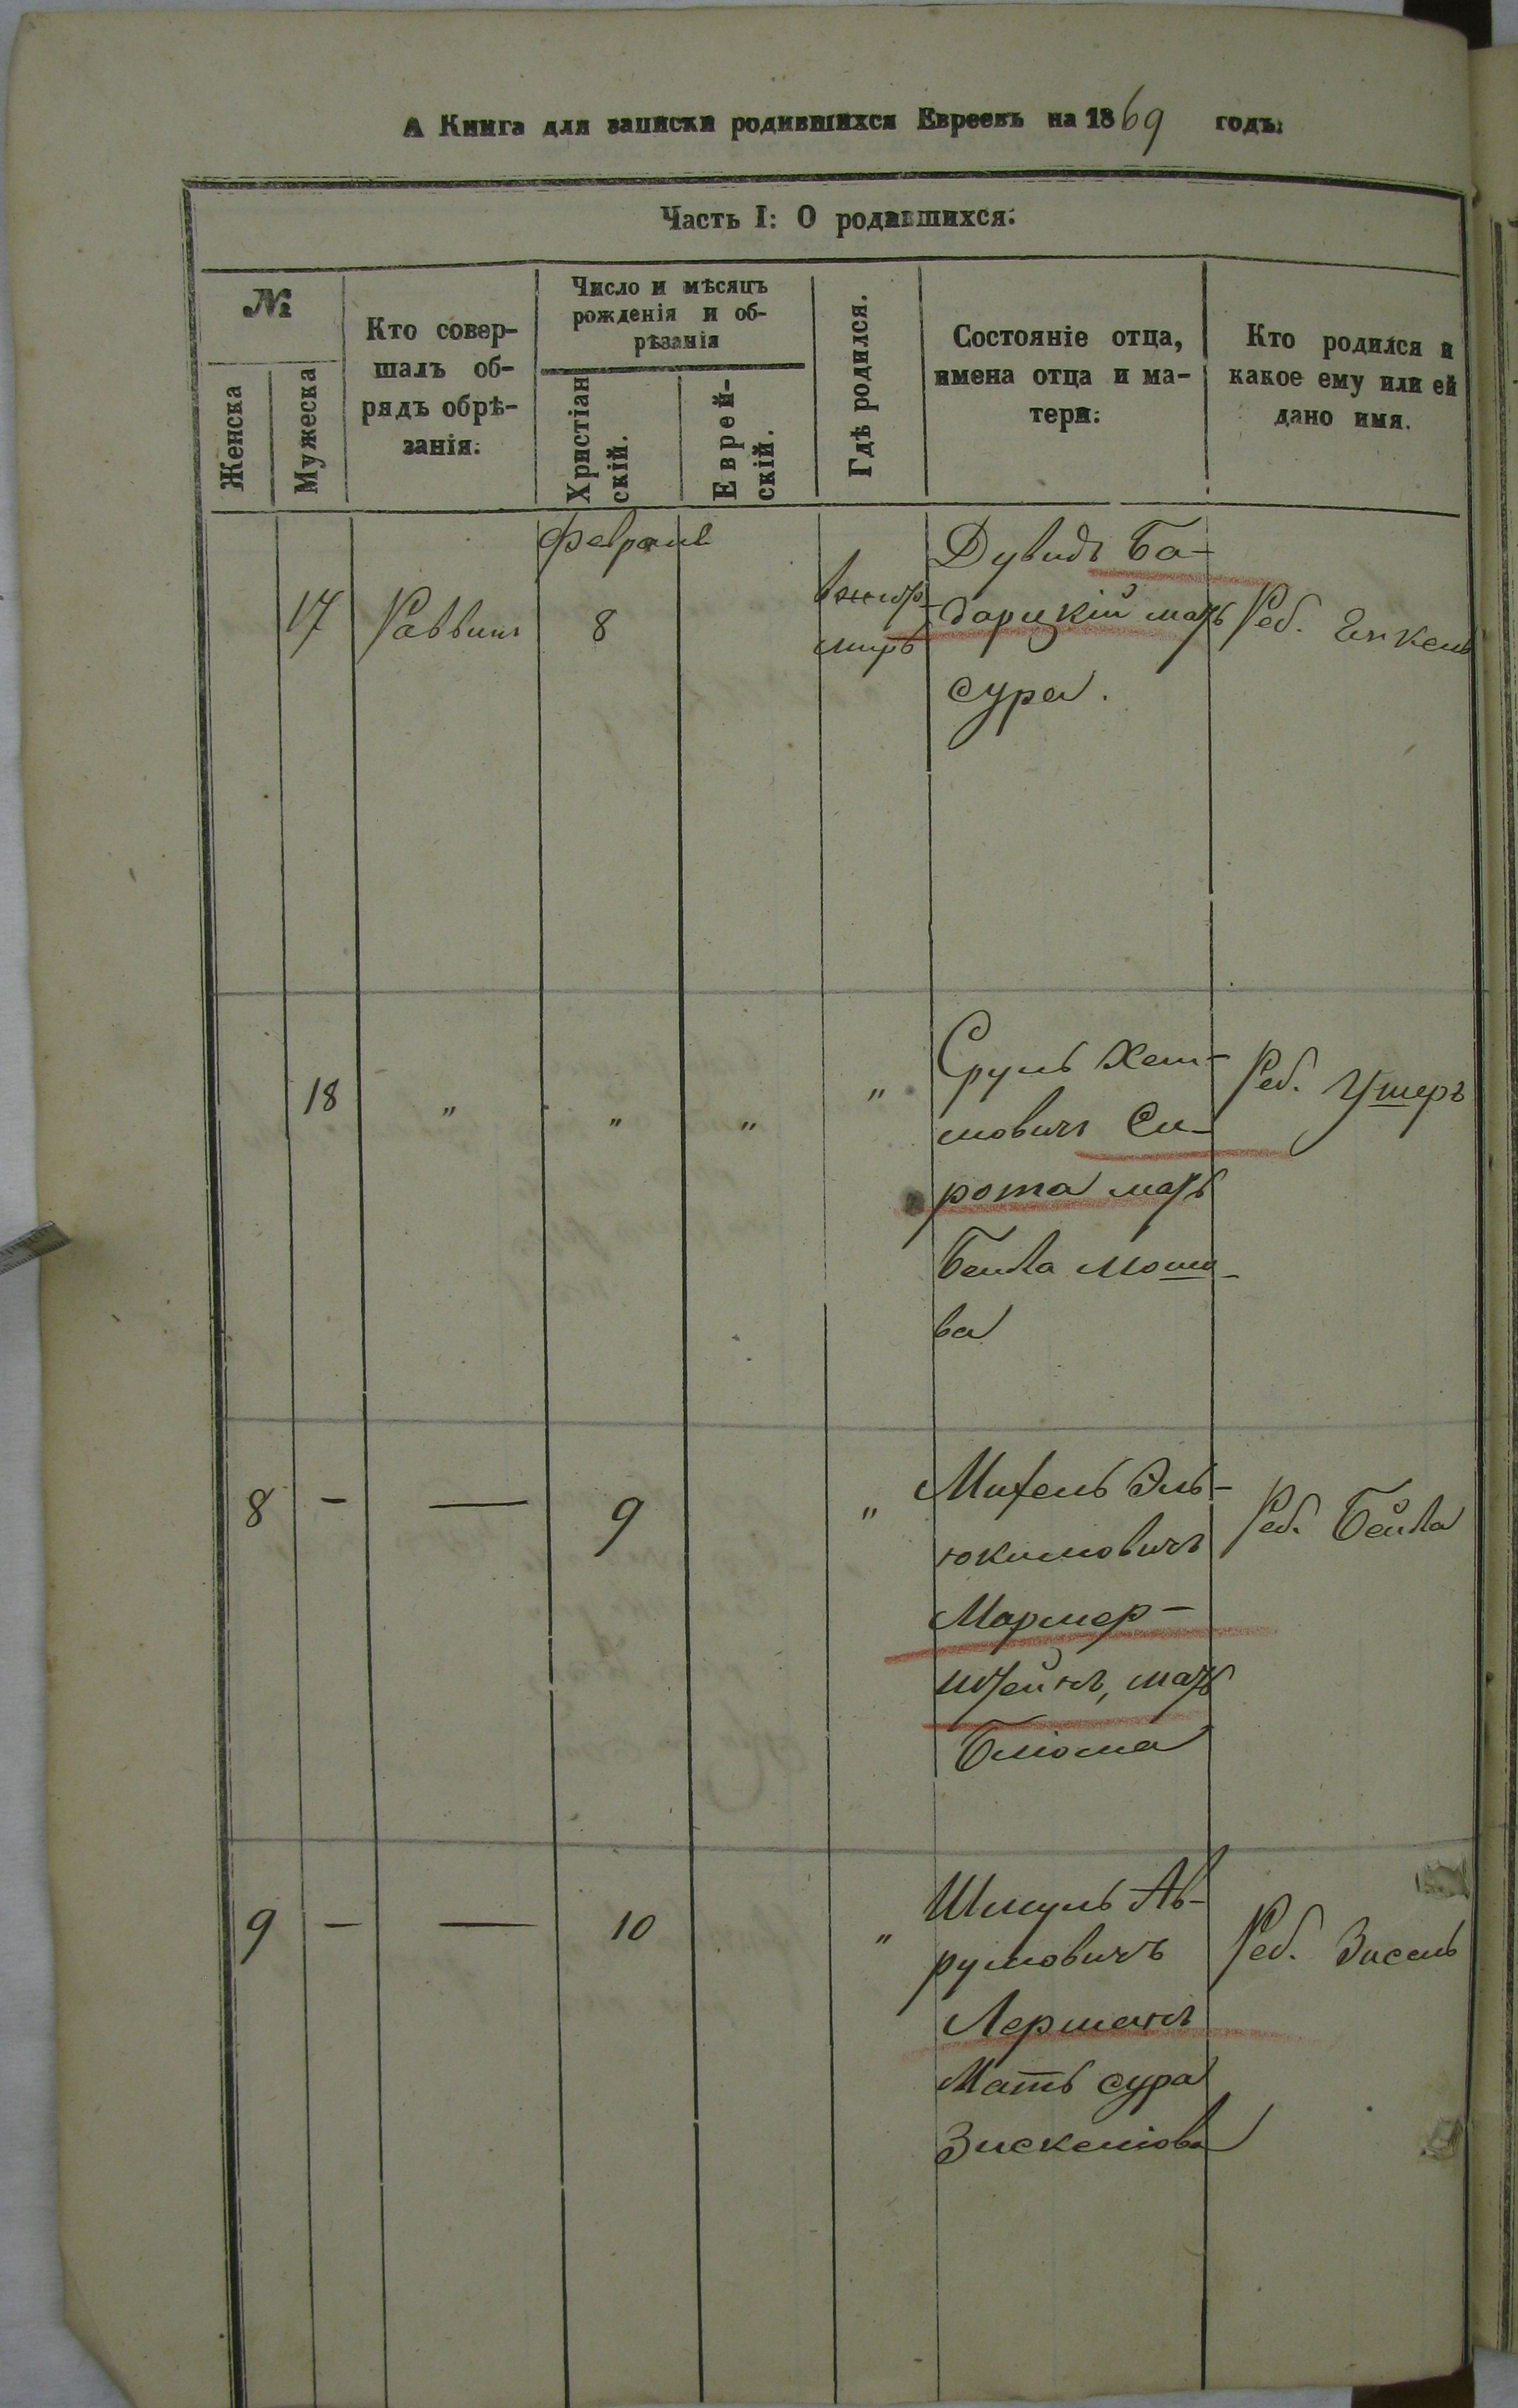 А Книга для записки родившихся Евреевъ на 1869 годъ:
Часть I: О родившихся.
№
Женска
Мужеска
Кто совер-
шалъ об-
рядъ обрѣ-
занія.
Число и мѣсяцъ
рожденія и об-
рѣзанія
Христіан
скій.
Еврей-
скій.
Гдѣ родился.
Состояніе отца,
имена отца и ма-
тери.
Кто родился и
какое ему или ей
дано имя.
февраль
17
Раввинъ
8
Дувидъ Ба-
дарцкій мать
сура.
Реб. Янкель
18
"
"
"
"
Сруль Хаи-
мовичъ Си-
рота мать
Бейла Мошко-
ва
Реб. Ушеръ
8
-
—
9
"
Михель Эль-
юкимовичъ
Мармер-
штейнъ, мать
Блюма
Реб. Бейла
9
-
—
10
"
Шмуль Ав-
румовичъ
Лерманъ
Мать сура
Зискелiова
Реб. Зисель